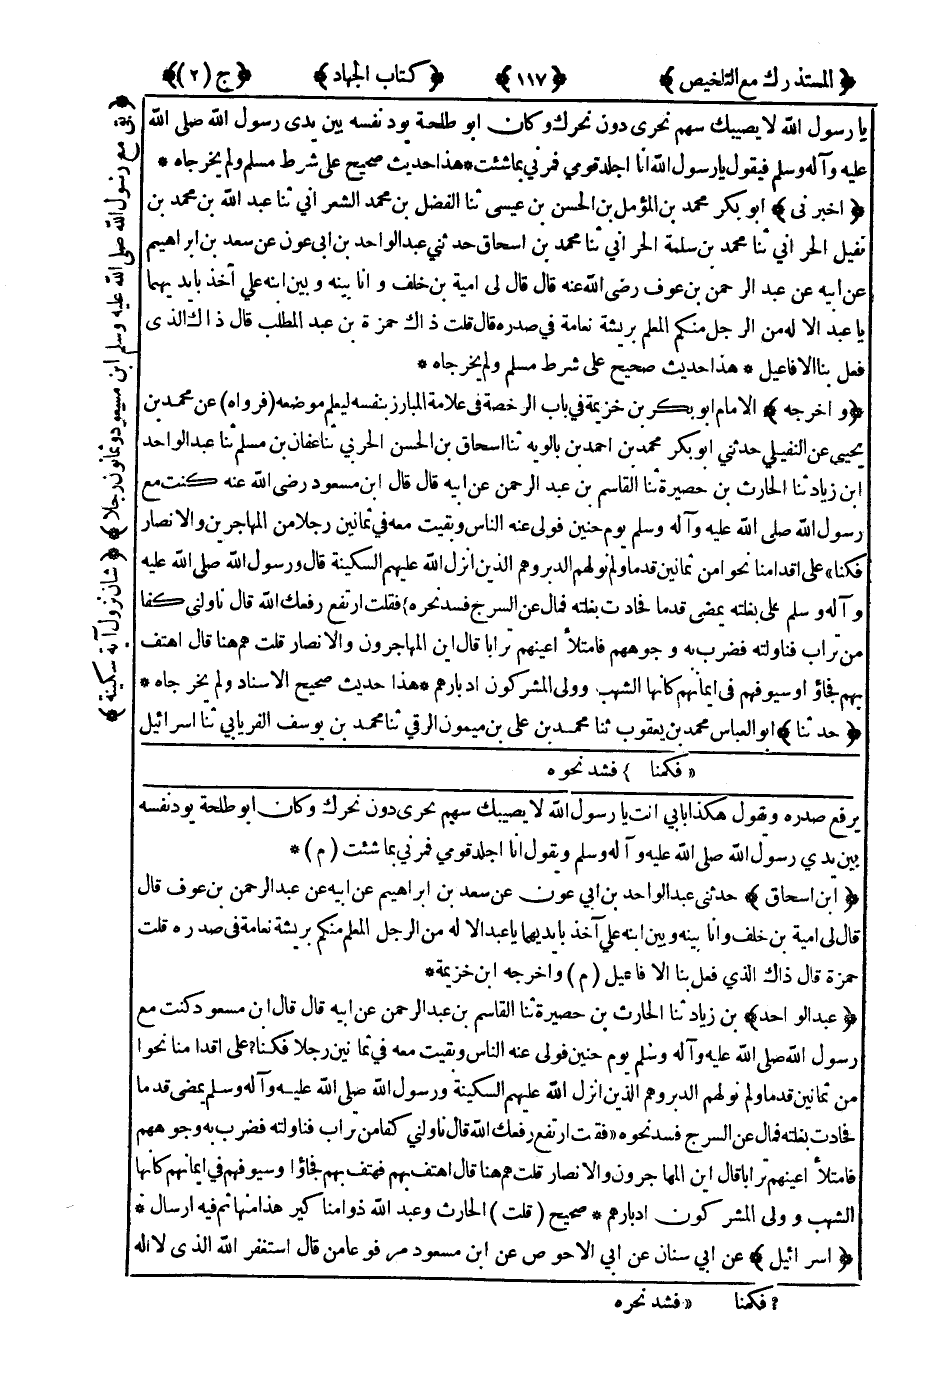 ﴿ المستدرك مع التلخيص ﴾ ﴿ ١١٧ ﴾ ﴿ كتاب الجهاد ﴾ ﴿ ج (٢) ﴾
يا رسول الله لا يصيبك سهم نحرى دون نحرك وكان ابو طلحة يود نفسه بين يدى رسول الله صلى الله
عليه وآله وسلم فيقول يا رسول الله انا اجلد قومي فمرني بما شئت * هذا حديث صحيح على شرط مسلم ولم يخرجاه *
﴿ اخبر نى ﴾ ابو بكر محمد بن المؤمل بن الحسن بن عيسى ثنا الفضل بن محمد الشعر اني ثنا عبد الله بن محمد بن
نفيل الحر اني ثنا محمد بن سلمة الحر اني ثنا محمد بن اسحاق حد ثني عبد الواحد بن ابى عون عن سعد بن ابر اهيم
عن ابيه عن عبد الر حمن بن عوف رضى الله عنه قال قال لى امية بن خلف و انا بينه و بين ابنه علي آخذ بايد يهما
يا عبد الا له من الر جل منكم المعلم بر يشة نعامة في صدره قال قلت ذ اك حمز ة بن عبد المطلب قال ذ اك الذ ى
فعل بنا الافاعيل * هذا حديث صحيح على شرط مسلم ولم يخر جاه *
﴿ و اخر جه ﴾ الامام ابو بكر بن خزيمة في باب الر خصة فى علامة المبارز بنفسه ليعلم موضعه (فر واه) عن محمد بن
يحيى عن النفيلي حدثني ابو بكر محمد بن احمد بن بالويه ثنا اسحاق بن الحسن الحربي ثنا عفان بن مسلم ثنا عبد الواحد
ابن زياد ثنا الحارث بن حصيرة ثنا القاسم بن عبد الرحمن عن ابيه قال قال ابن مسعود رضى الله عنه كنت مع
رسول الله صلى الله عليه وآله وسلم يوم حنين فولى عنه الناس وبقيت معه في ثمانين رجلا من المهاجرين والانصار
فكنا» على اقدامنا نحوا من ثمانين قدما ولم نولهم الدبر وهم الذين انزل الله عليهم السكينة قال ورسول الله صلى الله عليه
و آ له و سلم على بغلته يمضى قدما فحادت بغلته فمال عن السرج فسد نحره} فقلت ارتفع رفعك الله قال ناولني كفا
من تراب فناولته فضرب به و جوههم فامتلأ اعينهم ترابا قال اين المهاجرون والانصار قلت هم هنا قال اهتف
بهم فجاؤ ا وسيوفهم فى ايمانهم كانها الشهب وولى المشركون ادبارهم * هذا حديث صحيح الاسناد ولم يخر جاه *
﴿ حد ثنا ﴾ ابو العباس محمد بن يعقوب ثنا محمد بن على بن ميمون الرقي ثنا محمد بن يوسف الفريابي ثنا اسر ائيل
« فكنا } فشد نحوه
يرفع صدره ويقول هكذا بابي انت يا رسول الله لا يصيبك سهم نحرى دون نحرك وكان ابو طلحة يود نفسه
بين يدي رسول الله صلى الله عليه وآله وسلم ويقول انا اجلد قومي فمرني بما شئت (م) *
﴿ ابن اسحاق ﴾ حدثنى عبد الواحد بن ابي عون عن سعد بن ابر اهيم عن ابيه عن عبد الرحمن بن عوف قال
قال لى امية بن خلف وانا بينه وبين ابنه علي آخذ بايديهما يا عبد الا له من الرجل المعلم منكم بريشة نعامة فى صد ر ه قلت
حمزة قال ذاك الذي فعل بنا الا فاعيل (م) واخرجه ابن خزيمة *
﴿ عبد الو احد ﴾ بن زياد ثنا الحارث بن حصيرة ثنا القاسم بن عبد الرحمن عن ابيه قال قال ابن مسعود كنت مع
رسول الله صلى الله عليه وآله وسلم يوم حنين فولى عنه الناس وبقيت معه في ثما نين رجلا فكنا؟ على اقدا منا نحوا
من ثمانين قدما ولم نولهم الدبر وهم الذين انزل الله عليهم السكينة ورسول الله صلى الله عليه وآله وسلم يمضى قدما
فحادت بغلته فمال عن السرج فسد نحوه « فقلت ارتفع رفعك الله قال ناولني كفا من تراب فناولته فضرب به وجوههم
فامتلأ اعينهم ترابا قال اين المها جرون والانصار قلت هم هنا قال اهتف بهم فهتف بهم فجاؤا وسيوفهم في ايمانهم كانها
الشهب و ولى المشر كون ادبارهم * صحيح (قلت) الحارث وعبد الله ذوا مناكير هذا منها ثم فيه ارسال *
﴿ اسر ائيل ﴾ عن ابي سنان عن ابي الاحو ص عن ابن مسعود مر فو عا من قال استغفر الله الذ ى لا اله
؟ فكنا « فشد نحره
﴿ مع رسول الله صلى الله عليه وسلم ابن مسعود وثمانون رجلا ﴾ ﴿ شان نزول آية سكينة ﴾